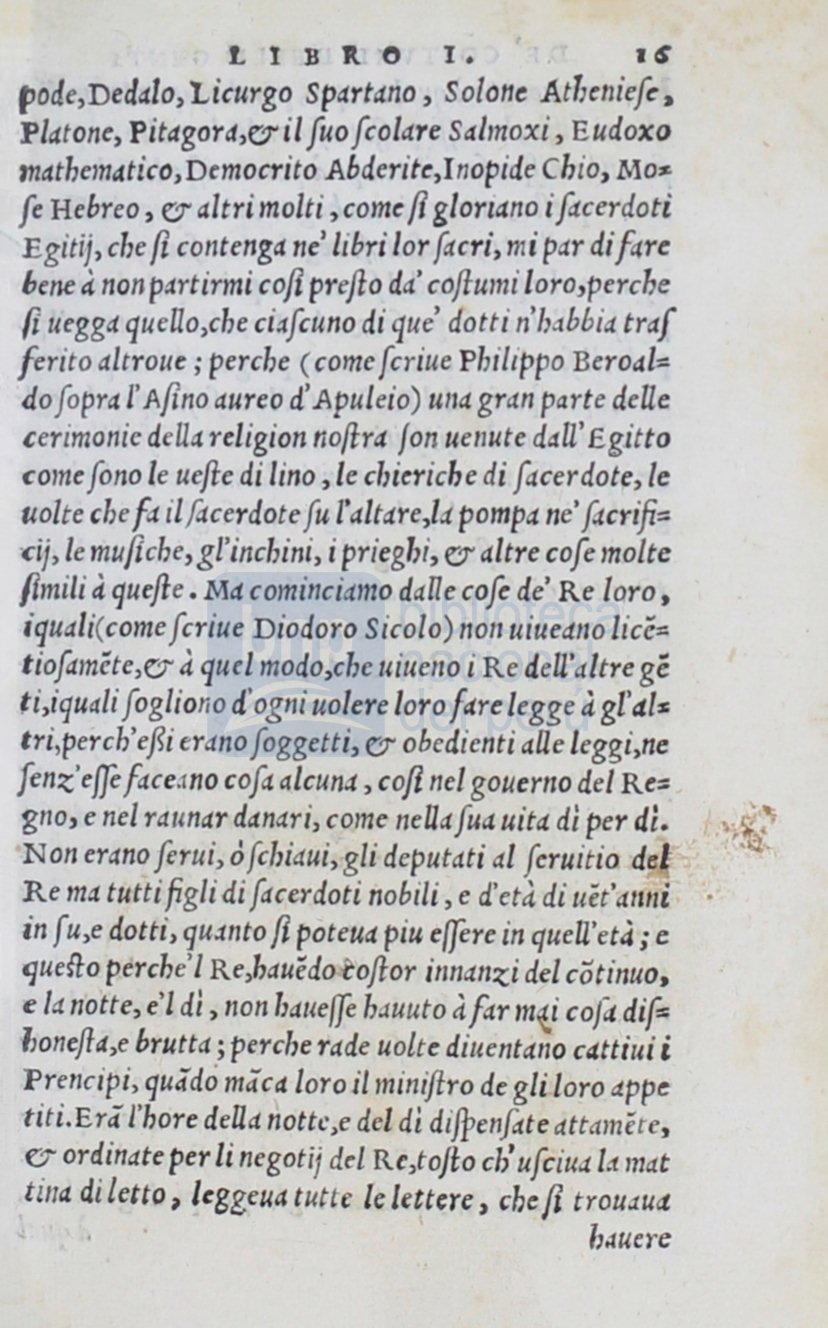 LIBRO I. 16
pode, Dedalo, Licurgo Spartano, Solone Athenieſe,
Platone, Pitagora, & il ſuo ſcolare Salmoxi, Eudoxo
mathematico, Democrito Abderite, Inopide Chio, Mo=
ſe Hebreo, & altri molti, come ſi gloriano i ſacerdoti
Egitij, che ſi contenga ne' libri lor ſacri, mi par di fare
bene à non partirmi coſi preſto da' coſtumi loro, perche
ſi uegga quello, che ciaſcuno di que' dotti n'habbia traſ
ferito altroue; perche (come ſcriue Philippo Beroal=
do ſopra l'Aſino aureo d'Apuleio) una gran parte delle
cerimonie della religion noſtra ſon uenute dall'Egitto
come ſono le ueſte di lino, le chieriche di ſacerdote, le
uolte che fa il ſacerdote ſu l'altare, la pompa ne' ſacrifi=
cij, le muſiche, gl'inchini, i prieghi, & altre coſe molte
ſimili à queſte. Ma cominciamo dalle coſe de' Re loro,
iquali (come ſcriue Diodoro Sicolo) non uiueano licē=
tioſamēte, & à quel modo, che uiueno i Re dell'altre gē
ti, iquali ſogliono d'ogni uolere loro fare legge à gl'al=
tri, perch'eßi erano ſoggetti, & obedienti alle leggi, ne
ſenz'eſſe faceano coſa alcuna, coſi nel gouerno del Re=
gno, e nel raunar danari, come nella ſua uita dì per dì.
Non erano ſerui, ò ſchiaui, gli deputati al ſeruitio del
Re ma tutti figli di ſacerdoti nobili, e d'età di uēt'anni
in ſu, e dotti, quanto ſi poteua piu eſſere in quell'età; e
queſto perche'l Re, hauēdo coſtor innanzi del cōtinuo,
e la notte, e'l dì, non haueſſe hauuto à far mai coſa diſ=
honeſta, e brutta; perche rade uolte diuentano cattiui i
Prencipi, quādo māca loro il miniſtro de gli loro appe
titi. Erā l'hore della notte, e del dì diſpenſate attamēte,
& ordinate per li negotij del Re, toſto ch'uſciua la mat
tina di letto, leggeua tutte le lettere, che ſi trouaua
hauere
biblioteca
nacional
del perú